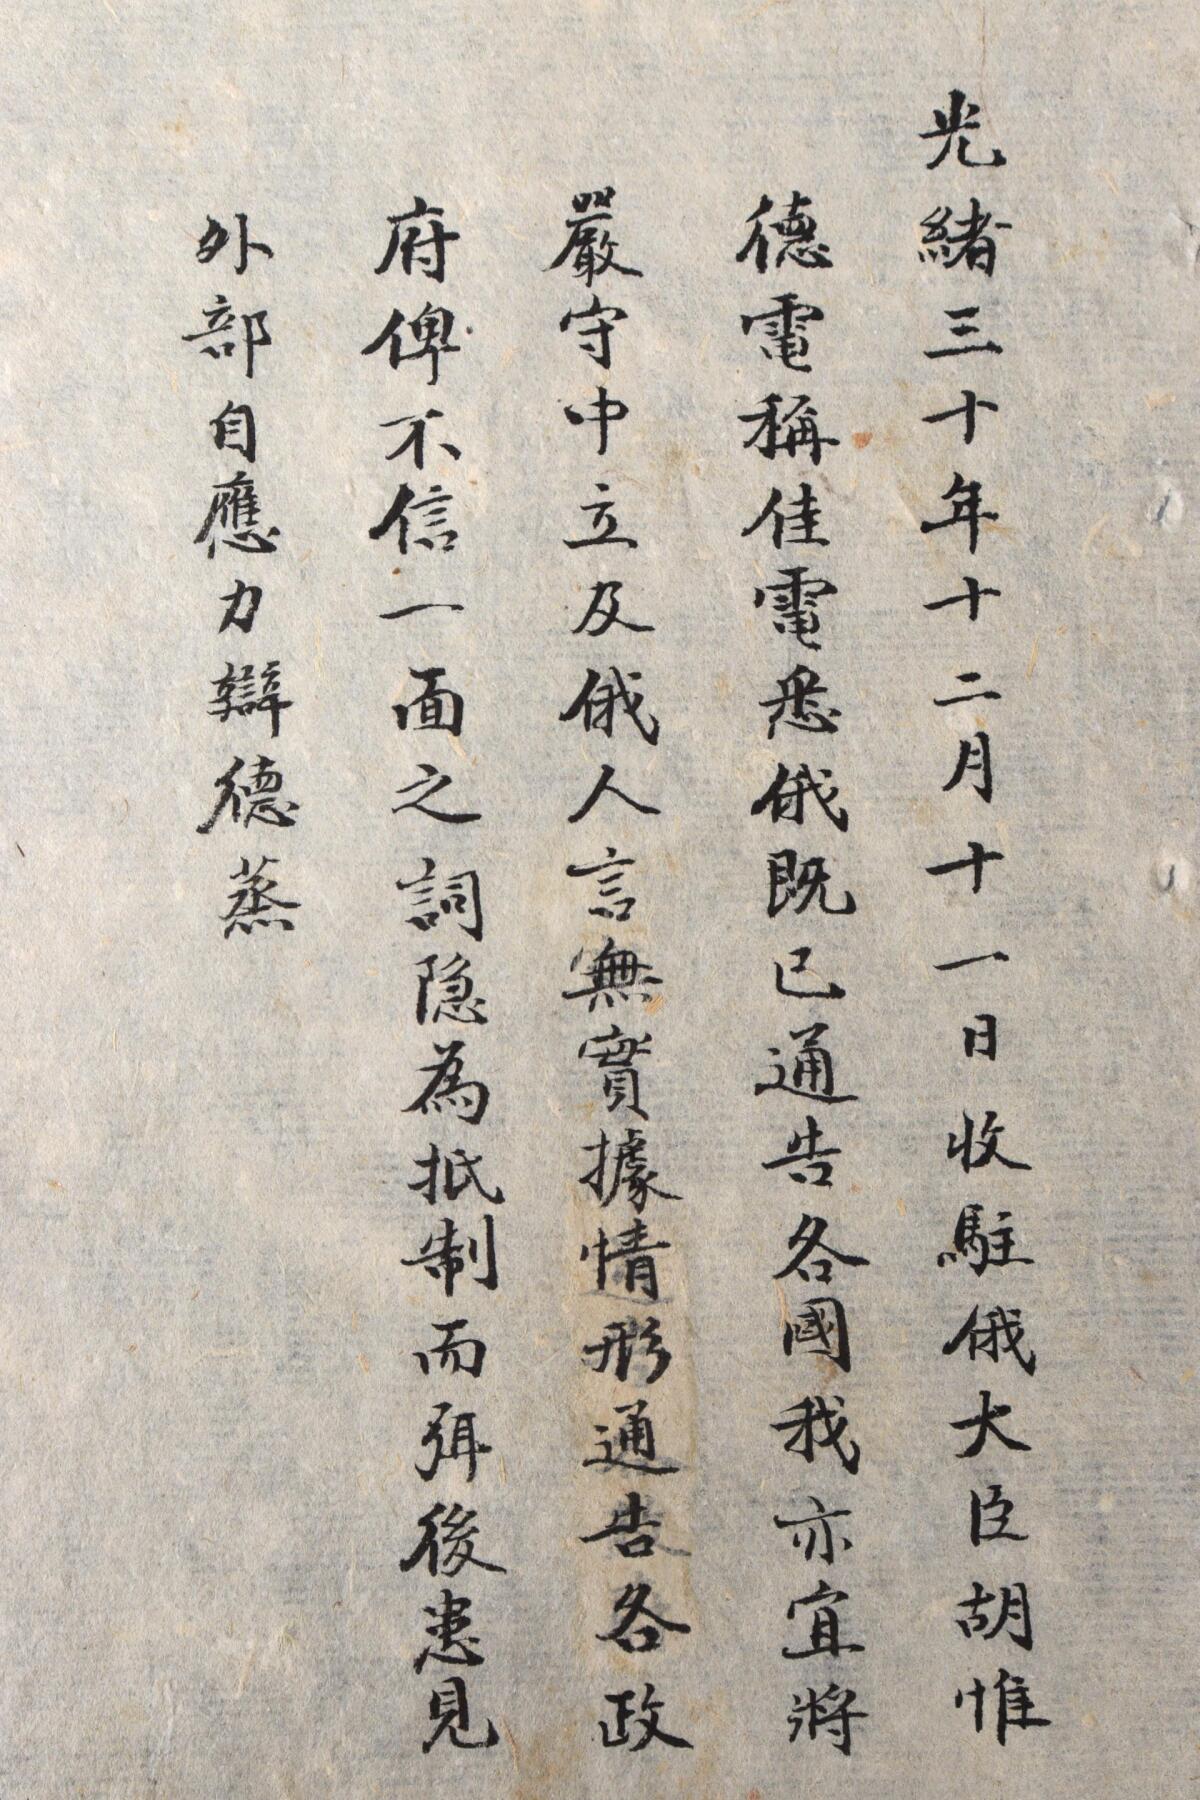 光緒三十年十二月十一日收駐俄大臣胡惟
德電稱佳電悉俄既已通告各國我亦宜將
嚴守中立及俄人言無實據情形通告各政
府俾不信一面之詞隐為抵制而弭後患見
外部自應力辯德蒸